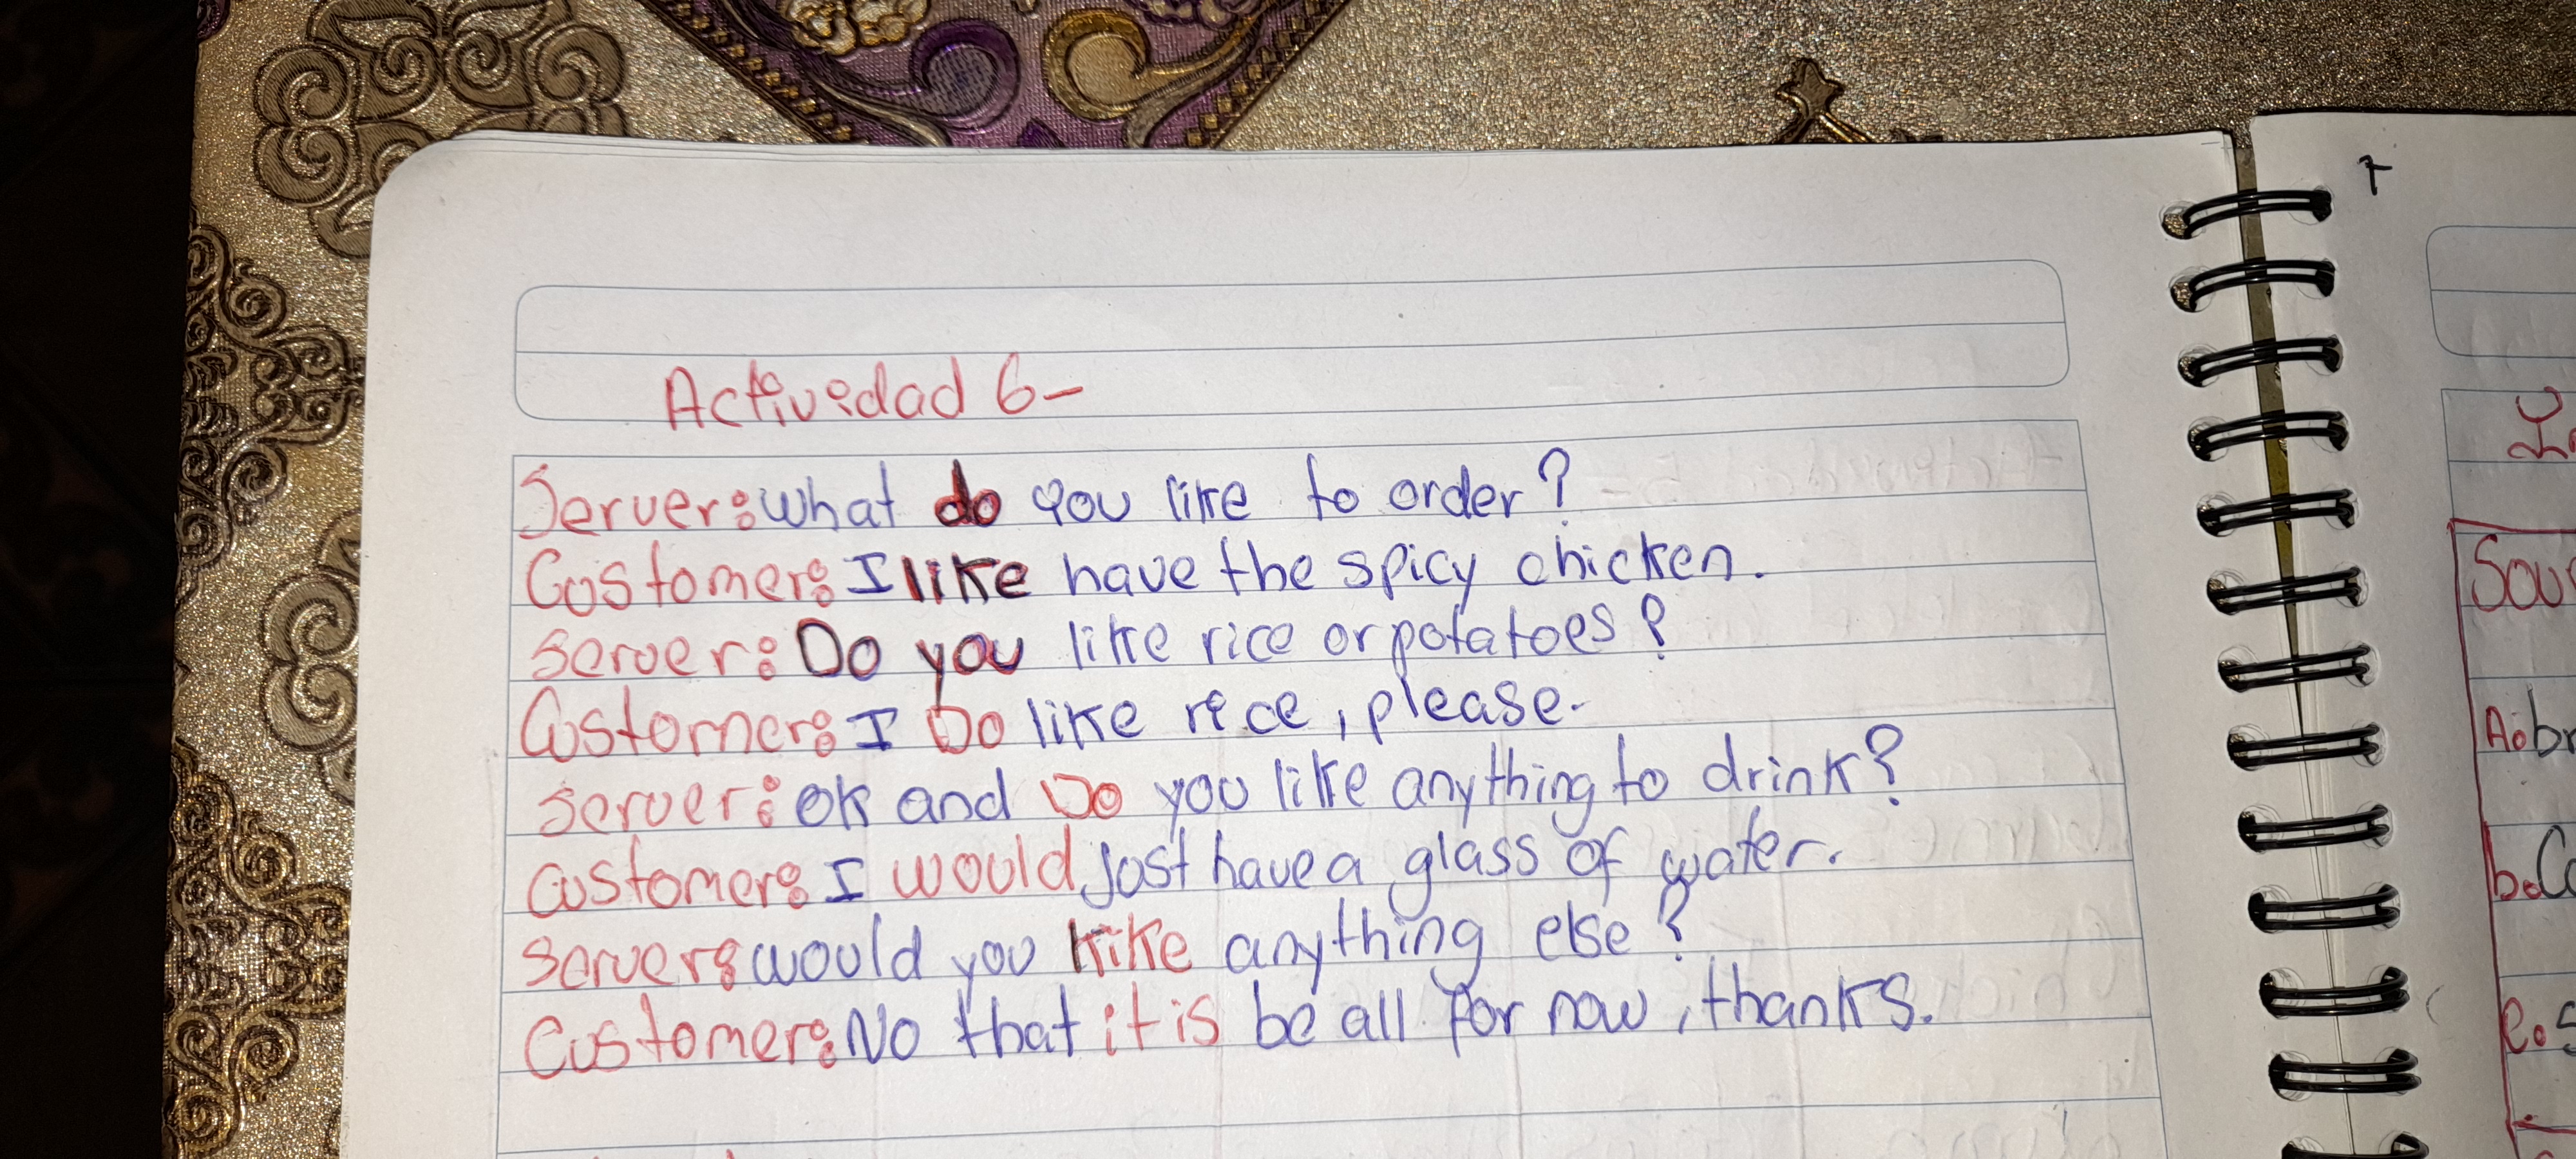 Actividad 6-
Server: what do you like to order?
Customer: I like have the spicy chicken.
Server: Do you like rice or potatoes?
Customer: I Do like rice, please.
Server: ok and Do you like anything to drink?
Customer: I would Just have a glass of water.
Server: would you like anything else?
Customer: No that it is be all for now, thanks.
7
Sou
A. br
b. C
c. S